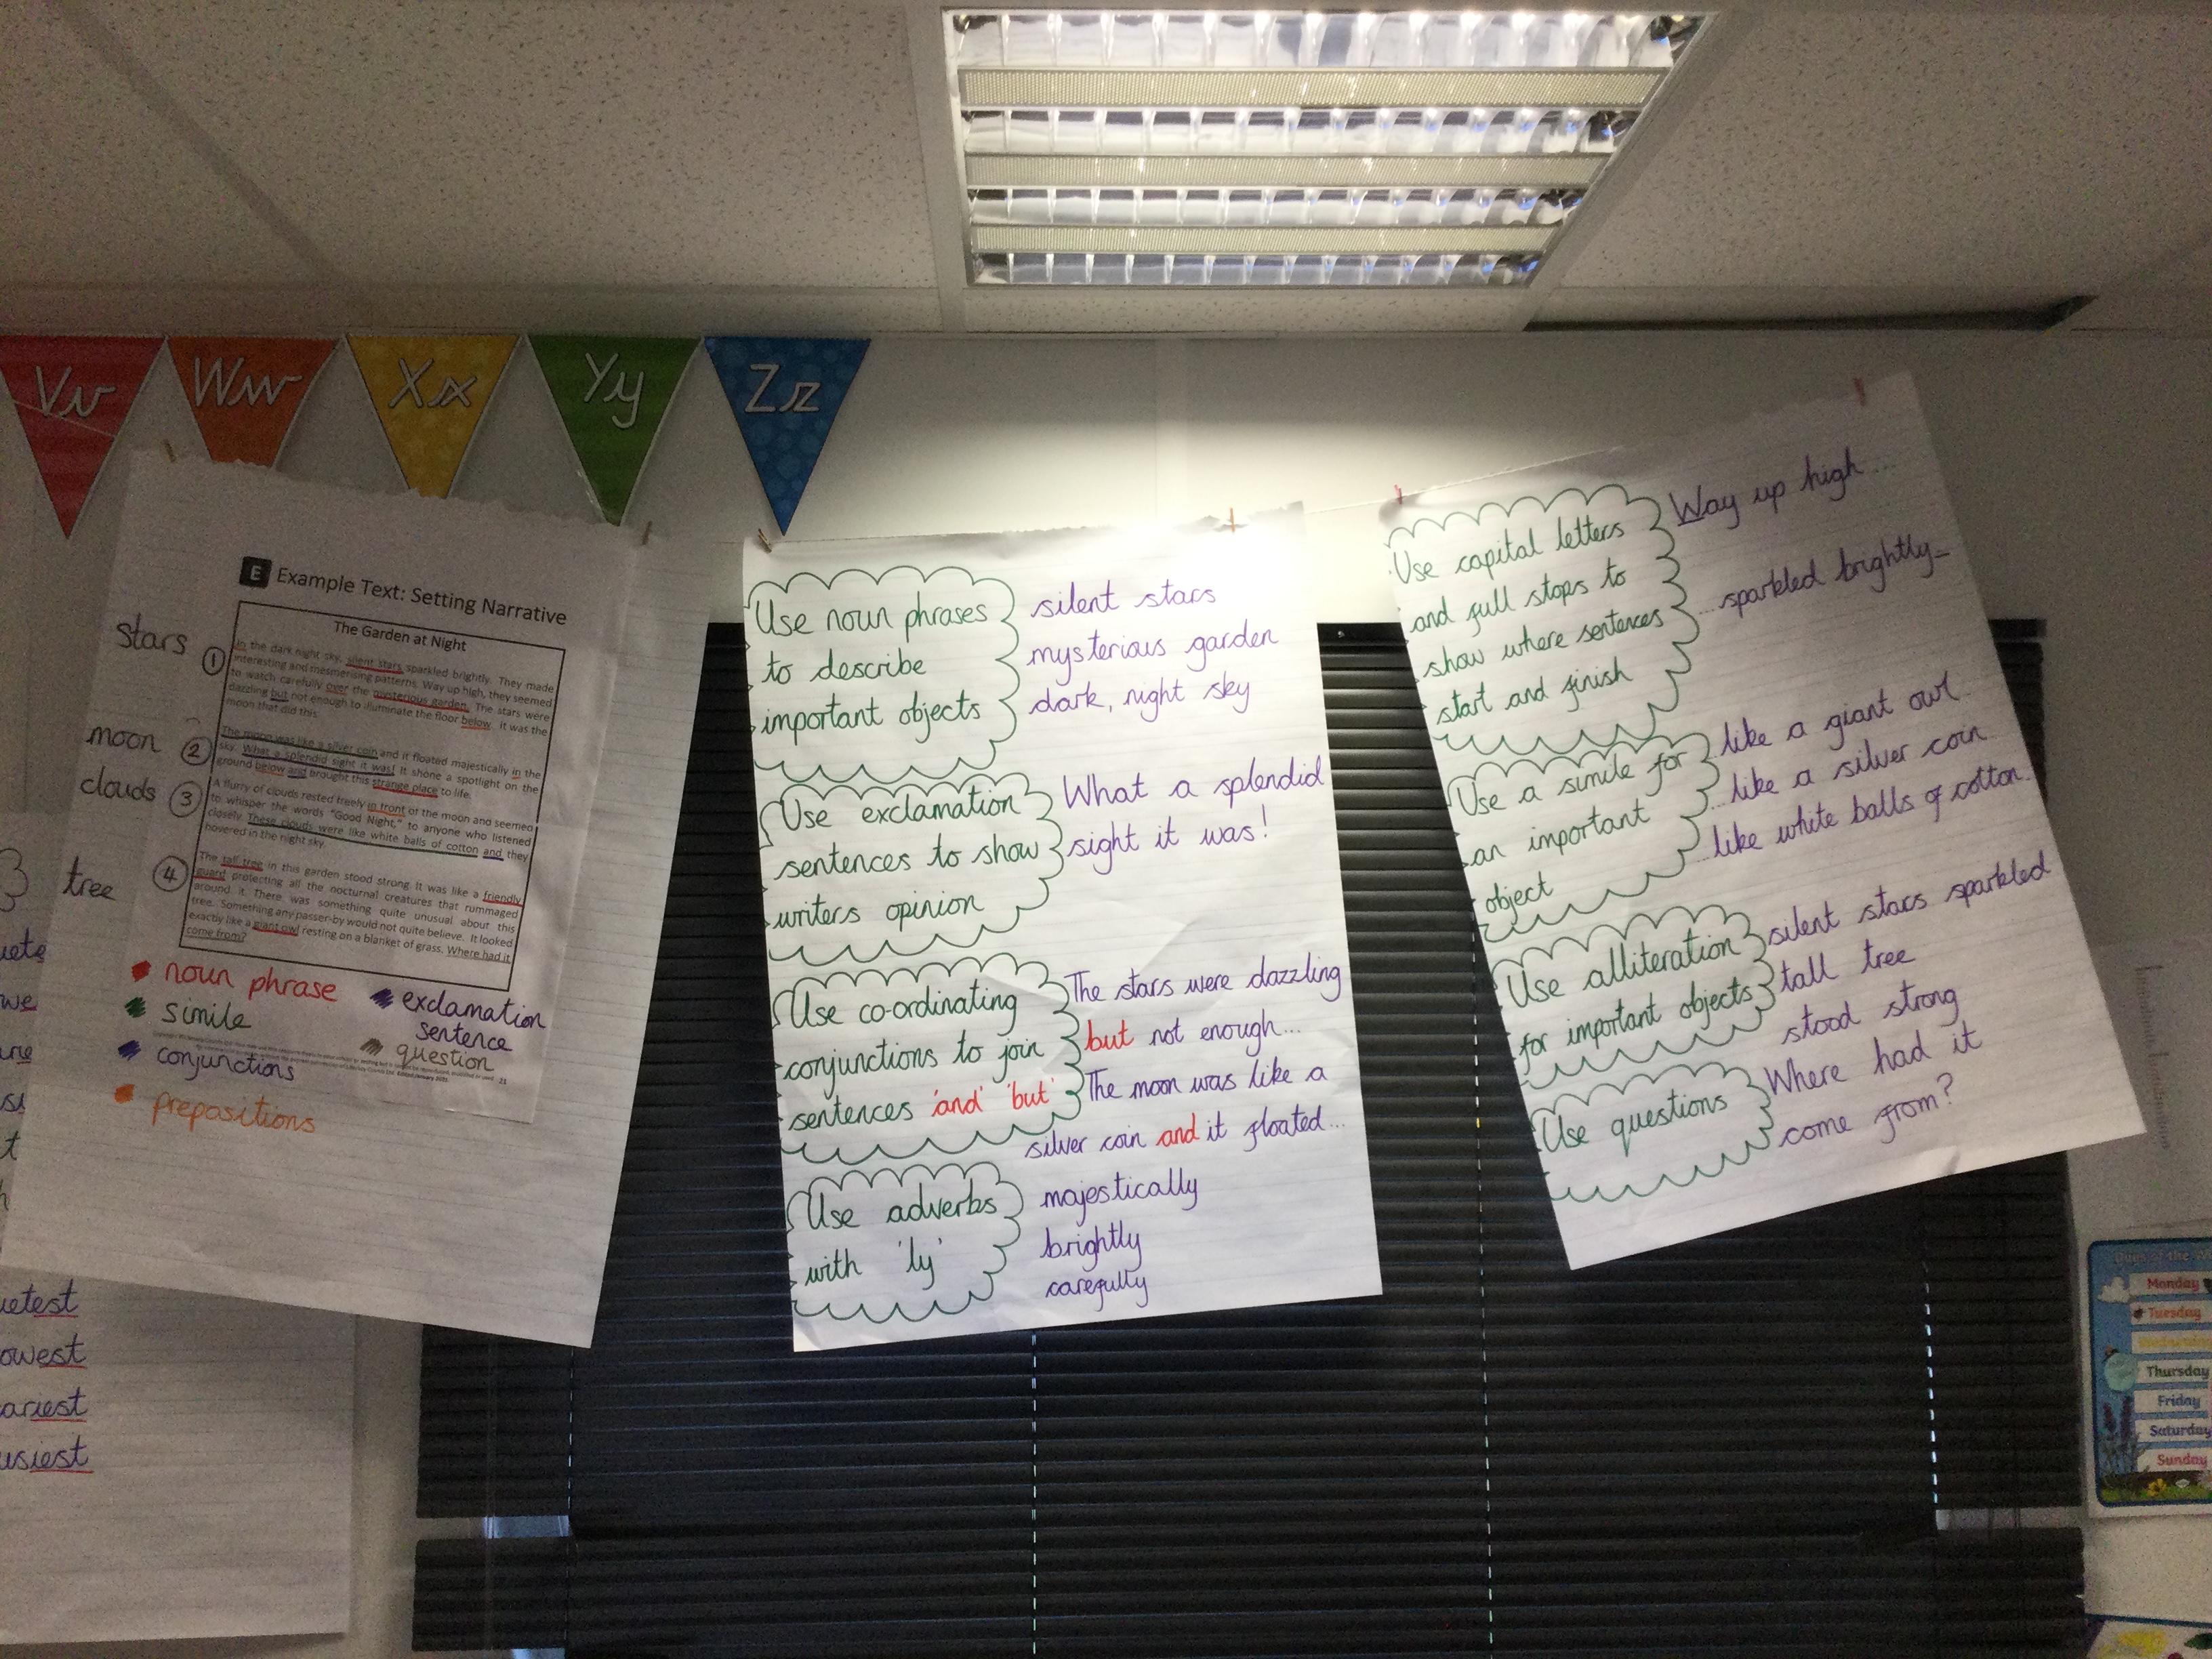 Vv Ww Xx Yy Zz
E Example Text: Setting Narrative
The Garden at Night
stars
1
In the dark night sky, silent stars sparkled brightly. They made
interesting and mesmerising patterns. Way up high, they seemed
to watch carefully over the mysterious garden. The stars were
dazzling but not enough to illuminate the floor below. It was the
moon that did this.
moon
2
The moon was like a silver coin and it floated majestically in the
sky. What a splendid sight it was! It shone a spotlight on the
ground below and brought this strange place to life.
clouds
3
A flurry of clouds rested freely in front of the moon and seemed
to whisper the words "Good Night," to anyone who listened
closely. These clouds were like white balls of cotton and they
hovered in the night sky.
tree
4
The tall tree in this garden stood strong. It was like a friendly
guard protecting all the nocturnal creatures that rummaged
around it. There was something quite unusual about this
tree. Something any passer-by would not quite believe. It looked
exactly like a giant owl resting on a blanket of grass. Where had it
come from?
noun phrase
simile
conjunctions
prepositions
exclamation
sentence
question
21
Use noun phrases
to describe
important objects
silent stars
mysterious garden
dark, night sky
Use exclamation
sentences to show
writers opinion
What a splendid
sight it was!
Use co-ordinating
conjunctions to join
sentences 'and' 'but'
The stars were dazzling
but not enough...
The moon was like a
silver coin and it floated...
Use adverbs
with 'ly'
majestically
brightly
carefully
Use capital letters
and full stops to
show where sentences
start and finish
Way up high...
...sparkled brightly_
Use a simile for
an important
object
like a giant owl
...like a silver coin
...like white balls of cotton...
Use alliteration
for important objects
silent stars sparkled
tall tree
stood strong
Use questions
Where had it
come from?
Monday
Tuesday
Thursday
Friday
Saturday
Sunday